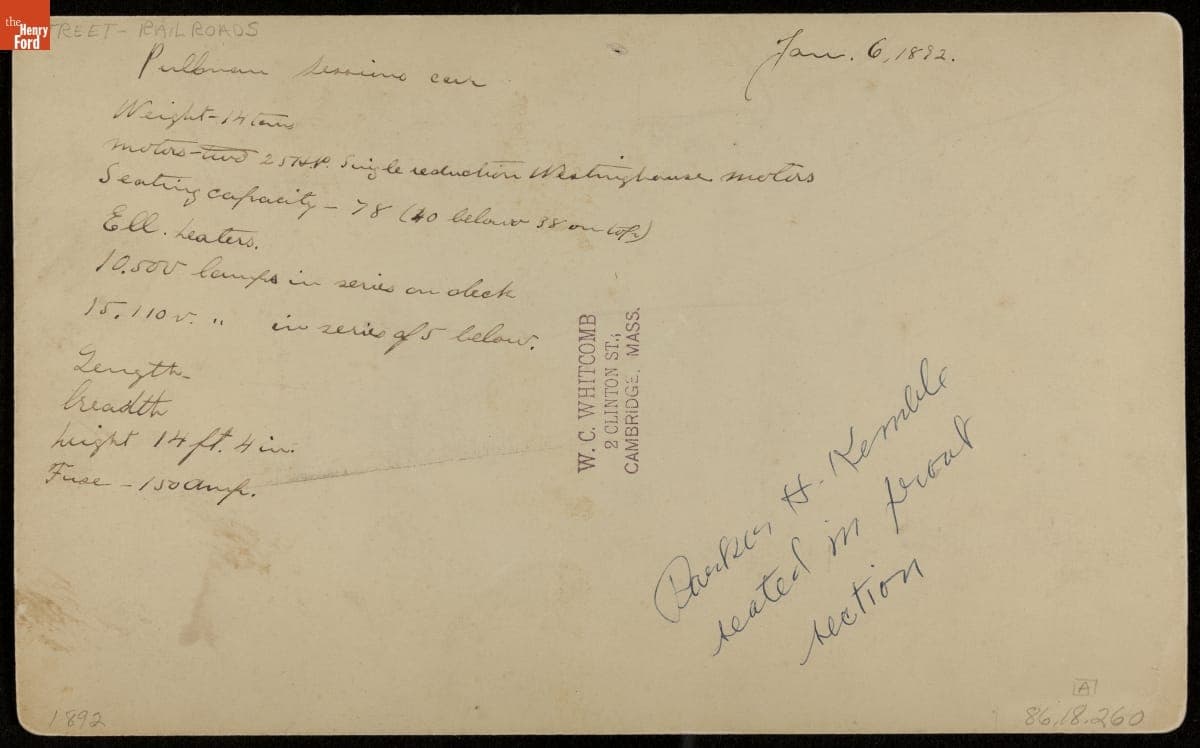 the
Henry
Ford
TREET - RAILROADS
Jan. 6, 1892.
Pullman Sessions car
Weight - 14 tons
motors - two 25 H.P. Single reduction Westinghouse motors
Seating capacity - 78 (40 below 38 on top)
Ell. heaters.
10.50V lamps in series on deck
15.110V. " in series of 5 below.
Length -
breadth
height 14 ft. 4 in.
Fuse - 150 amp.
W. C. WHITCOMB
2 CLINTON ST.,
CAMBRIDGE, MASS.
Parker H. Kemble
seated in front
section
1892
A
86.18.260